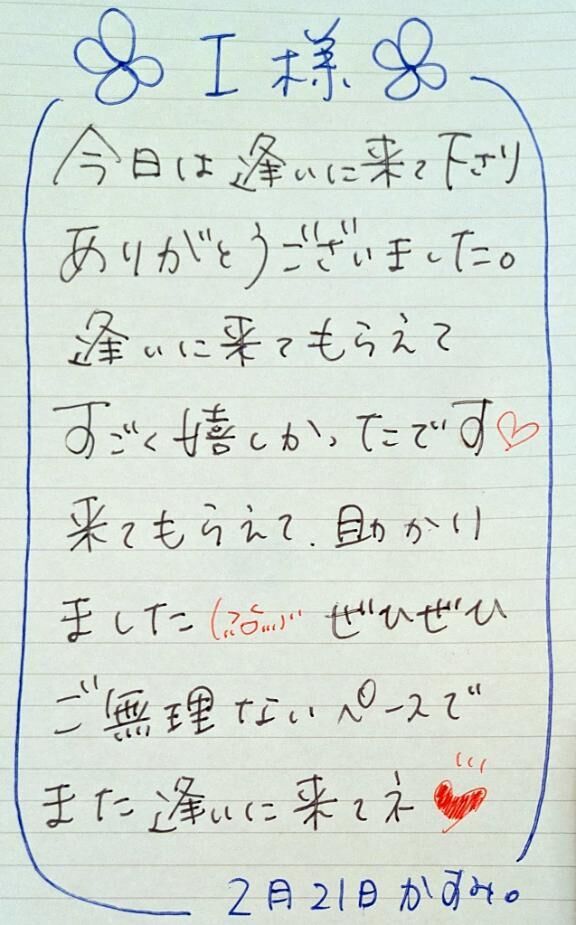 I 様
今日は逢いに来て下さり
ありがとうございました。
逢いに来てもらえて
すごく嬉しかったです♡
来てもらえて、助かり
ました ぜひぜひ
ご無理ないペースで
また逢いに来てネ♥
2月21日かすみ。